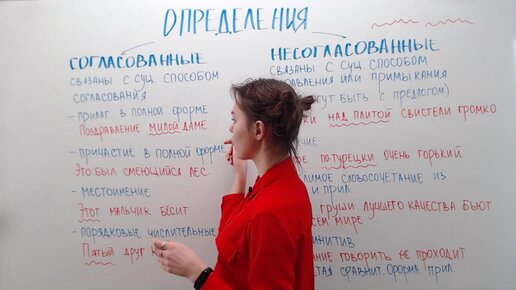 ОПРЕДЕЛЕНИЯ
СОГЛАСОВАННЫЕ
СВЯЗАНЫ С СУЩ СПОСОБОМ
СОГЛАСОВАНИЯ
- ПРИЛАГ В ПОЛНОЙ ФОРМЕ
ПОЗДРАВЛЕНИЕ МИЛОЙ ДАМЕ
- ПРИЧАСТИЕ В ПОЛНОЙ ФОРМЕ
ЭТО БЫЛ СМЕЮЩИЙСЯ ЛЕС.
- МЕСТОИМЕНИЕ
ЭТОТ МАЛЬЧИК БЕСИТ
- ПОРЯДКОВЫЕ ЧИСЛИТЕЛЬНЫЕ
ПЯТЫЙ ДРУГ
НЕСОГЛАСОВАННЫЕ
СВЯЗАНЫ С СУЩ СПОСОБОМ
ИЛИ ПРИМЫКАНИЯ
БЫТЬ С ПРЕДЛОГОМ)
НАД ПЛИТОЙ СВИСТЕЛИ ГРОМКО
ПО-ТУРЕЦКИ ОЧЕНЬ ГОРЬКИЙ
СЛОВОСОЧЕТАНИЕ ИЗ
И ПРИЛ
ГРУШИ ЛУЧШЕГО КАЧЕСТВА БЬЮТ
МИРЕ
ГОВОРИТЬ НЕ ПРОХОДИТ
СРАВНИТ. ФОРМА ПРИЛ